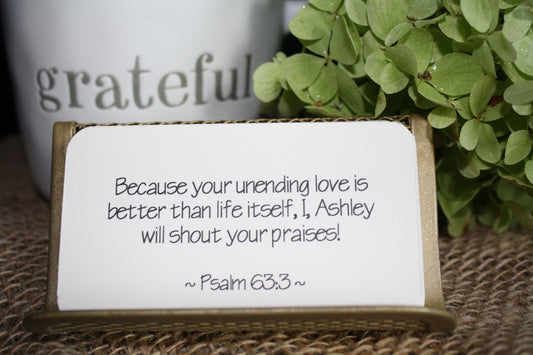 grateful
Because your unending love is
better than life itself, I, Ashley
will shout your praises!
~ Psalm 63:3 ~